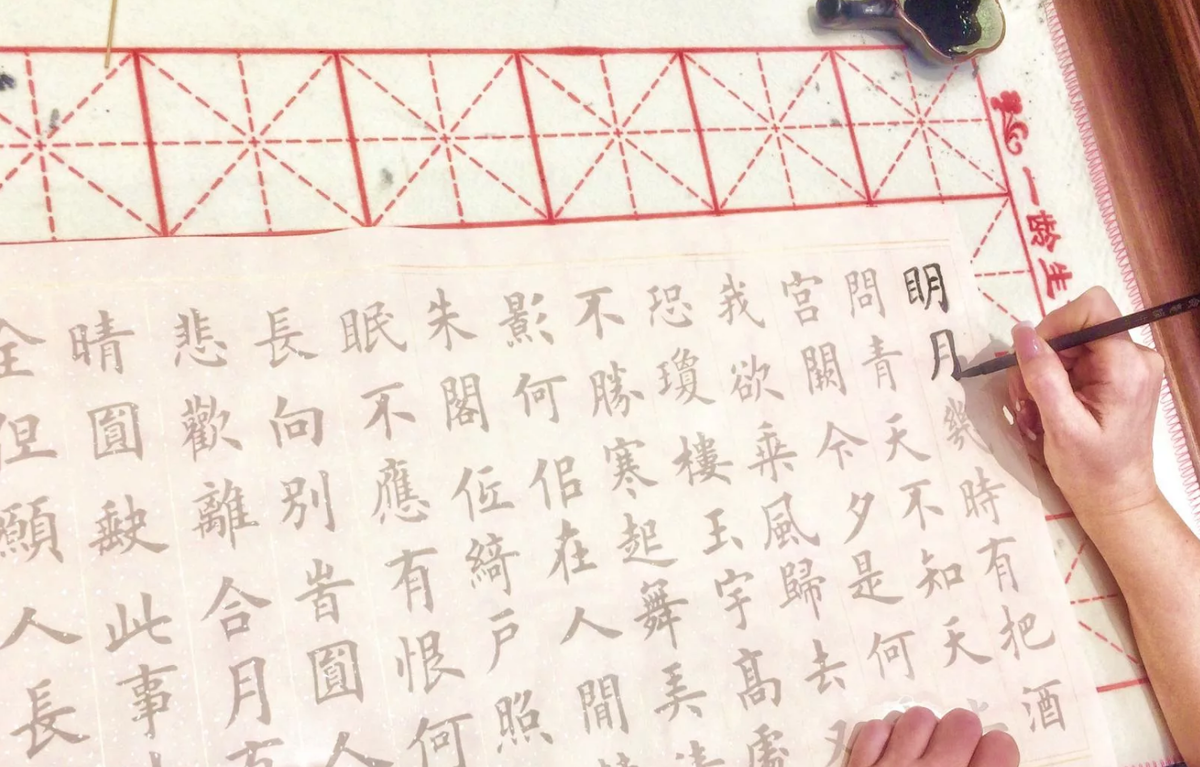 明月幾時有把酒
問青天不知天
宮闕今夕是何
我欲乗風歸去又
恐瓊樓玉宇髙處
不勝寒起舞弄清
影何佀在人間
朱閣仾綺戶照
眠不應有恨何
長向別旹圓人
悲歡離合月有
晴圓缺此事
全但願人長
一龄生